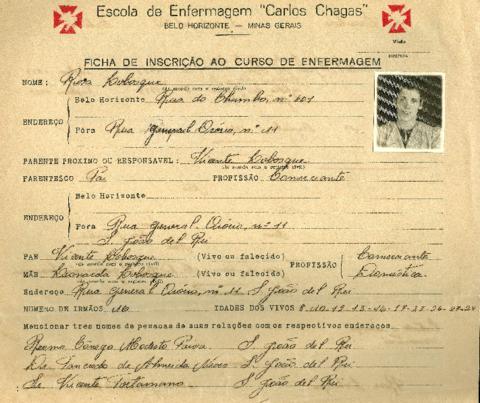 Escola de Enfermagem "Carlos Chagas"
BELO HORIZONTE — MINAS GERAIS
Visto
FICHA DE INSCRIÇÃO AO CURSO DE ENFERMAGEM
NOME: Rosa
Belo Horizonte Rua do Chumbo, nº 401
ENDEREÇO
Fóra Rua General Osório, nº 11
PARENTE PROXIMO OU RESPONSAVEL: Vicente
PARENTESCO Pai PROFISSÃO Comerciante
Belo Horizonte
ENDEREÇO
Fóra Rua General Osório, nº 11
S. João del Rei
PAE Vicente (Vivo ou falecido) PROFISSÃO Comerciante
MÃE (Viva ou falecida) Doméstica
Endereço Rua General Osório, nº 11 S. João del Rei
NUMERO DE IRMÃOS 10 IDADES DOS VIVOS
Mencionar tres nomes de pessoas de suas relações com os respectivos endereços.
Modesto Paiva S. João del Rei
Dr. Tancredo de Almeida Neves S. João del Rei
Sr. Vicente S. João del Rei